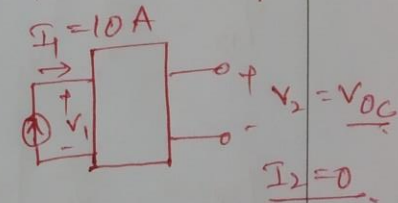 I₁ = 10 A
+
V₁
-
+
V₂ = V_OC
-
I₂ = 0